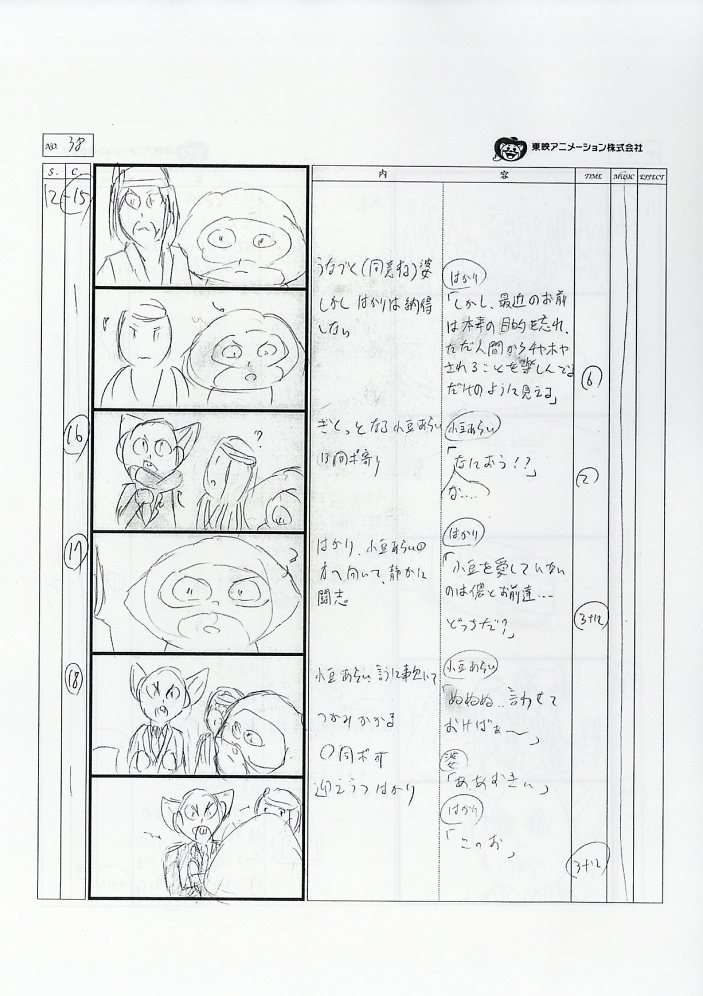 NO. 38
東映アニメーション株式会社
S. C. 内 容 TIME MUSIC EFFECT
12 -15
うなづく(同意ね)婆
しかし はかりは納得
しない
はかり
「しかし、最近のお前
は本来の目的も忘れ、
ただ人間からチヤホヤ
されることを楽しんでる
だけのように見える」
6
16
ぎくっとなる小豆あらい
13同ポ寄り
小豆あらい
「なにおう!?」
な....
2
17
はかり、小豆あらいの
方へ向いて、静かに
闘志
はかり
「小豆を愛していない
のは儂とお前達...
どっちだ?」
3+12
18
小豆あらい
つかみかかる
同ポ
迎えうつはかり
小豆あらい
「ぬぬぬ..言わせて
おけばぁ〜」
婆
「ああむさい」
はかり
「このお」
3+12